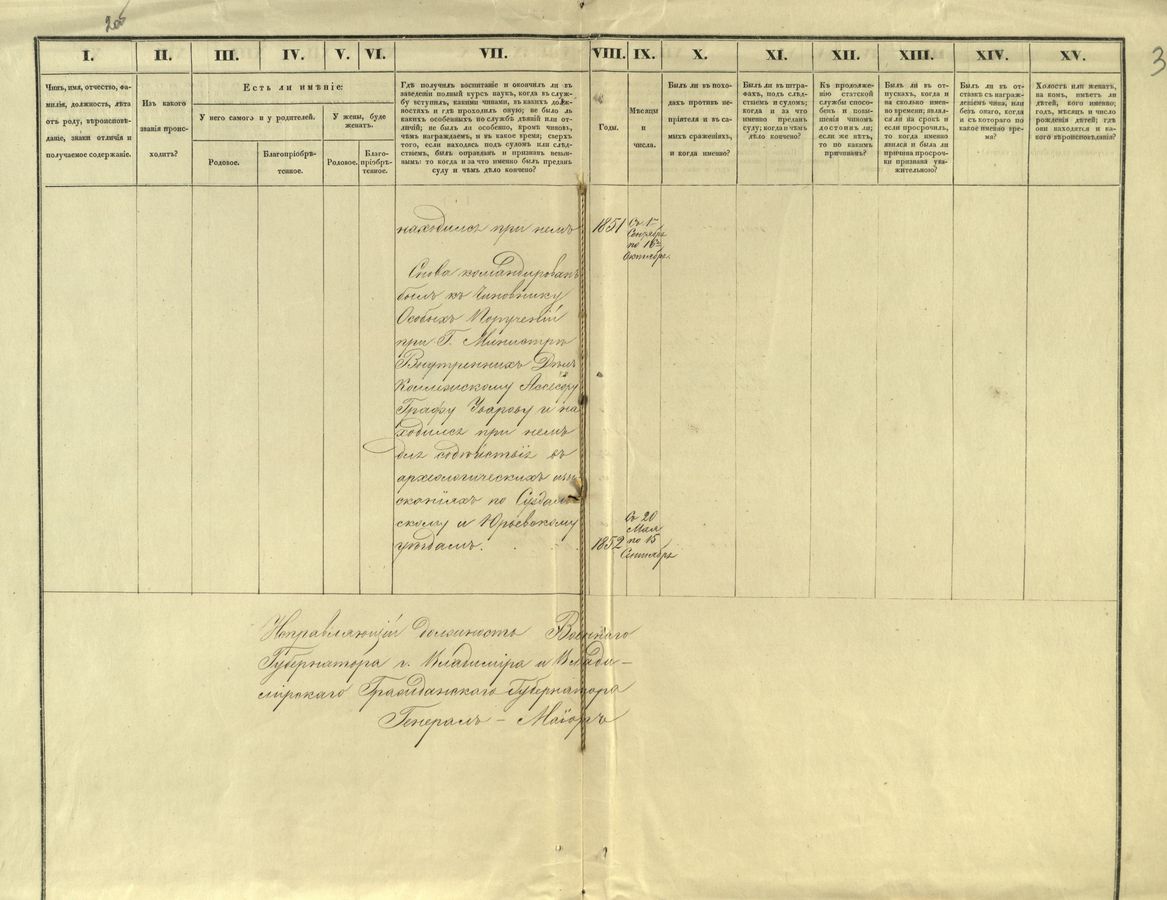 3
I.
II.
III.
IV.
V.
VI.
VII.
VIII.
IX.
X.
XI.
XII.
XIII.
XIV.
XV.
Чинъ, имя, отчество, фа-
милія, должность, лѣта
отъ роду, вѣроисповѣ-
даніе, знаки отличія и
получаемое содержаніе.
Изъ какого
званія проис-
ходитъ?
Есть ли имѣніе:
У него самого и у родителей.
У жены, буде
женатъ.
Родовое.
Благопріобрѣ-
тенное.
Родовое.
Благо-
пріобрѣ-
тенное.
Гдѣ получилъ воспитаніе и окончилъ ли въ
заведеніи полный курсъ наукъ, когда въ служ-
бу вступилъ, какими чинами, въ какихъ долж-
ностяхъ и гдѣ проходилъ оную; не было ль
какихъ особенныхъ по службѣ дѣяній или от-
личій; не былъ ли особенно, кромѣ чиновъ,
чѣмъ награждаемъ, и въ какое время; сверхъ
того, если находясь подъ судомъ или слѣд-
ствіемъ, былъ оправданъ и признанъ невин-
нымъ: то когда и за что именно былъ преданъ
суду и чѣмъ дѣло кончено?
Годы.
Мѣсяцы
и
числа.
Былъ ли въ похо-
дахъ противъ не-
пріятеля и въ са-
мыхъ сраженіяхъ,
и когда именно?
Былъ ли въ штра-
фахъ, подъ слѣд-
ствіемъ и судомъ;
когда и за что
именно преданъ
суду; когда и чѣмъ
дѣло кончено?
Къ продолже-
нію статской
службы спосо-
бенъ и повы-
шенія чиномъ
достоинъ ли;
если же нѣтъ,
то по какимъ
причинамъ?
Былъ ли въ от-
пускахъ, когда и
на сколько имен-
но времени; являл-
ся ли на срокъ и
если просрочилъ,
то когда именно
явился и была ли
причина просроч-
ки признана ува-
жительною?
Былъ ли въ от-
ставкѣ съ награж-
деніемъ чина, или
безъ онаго, когда
и съ котораго по
какое именно вре-
мя?
Холостъ или женатъ,
на комъ, имѣетъ ли
дѣтей, кого именно;
годъ, мѣсяцъ и число
рожденія дѣтей; гдѣ
они находятся и ка-
кого вѣроисповѣданія?
находился при немъ 1851 Съ 1го
Сентября
по 16е
Октября.
Снова командированъ
былъ къ Чиновнику
Особыхъ Порученій
при Г. Министрѣ
Внутреннихъ Дѣлъ
Коллежскому Ассесору
Графу Уварову и на
ходился при немъ
для содѣйствія въ
археологическихъ изы-
сканіяхъ по Суздаль-
скому и Юрьевскому
уѣздамъ. 1852 Съ 20
Мая
по 15
Сентября
Исправляющій должность Военнаго
Губернатора г. Владиміра и Влади-
мірскаго Гражданскаго Губернатора
Генералъ-Маіоръ